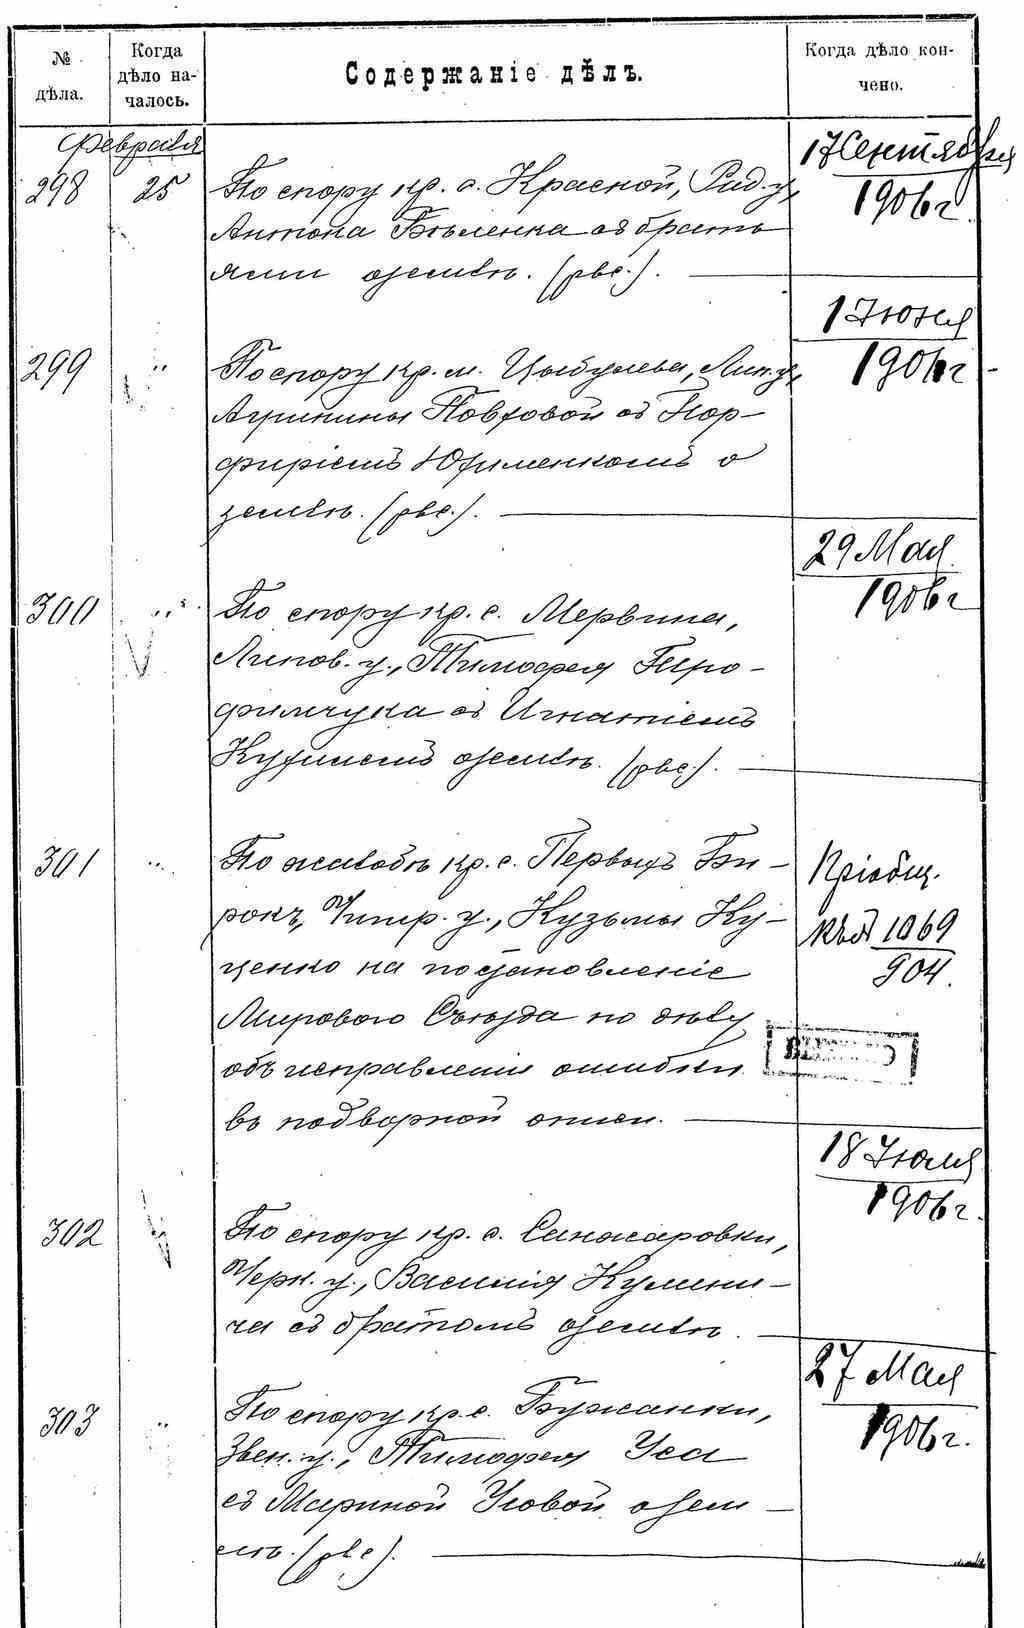 № дѣла.
Когда дѣло на-
чалось.
Содержаніе дѣлъ.
Когда дѣло кон-
чено.
Февраля
298 25 По спору кр. с. Красной, Рад. у,
Антона Бѣленка съ брать
ями о землѣ. (рвс.).
17 Сентября
1906 г.
299 " По спору кр. м. Цыбулева, Лип. у,
Агрипины Повховой съ Пор-
фиріемъ Юхименкомъ о
землѣ. (рвс.).
1 Іюня
1906 г
300 " По спору кр. с. Мервина,
Липов. у., Тимофея Тро-
фимчука съ Игнатіемъ
о землѣ. (рвс.).
29 Мая
1906 г
301 " По жалобѣ кр. с. Первыхъ
у., Кузьмы Ку-
ценко на постановленіе
Мироваго Съѣзда по дѣлу
объ исправленіи ошибки
въ подворной описи.
Пріобщ.
1069
904.
302 По спору кр. с. Синжаровки,
Черк. у., Василія Кулини-
ча съ братомъ о землѣ.
18 Іюля
1906 г.
303 " По спору кр. с. Бужанки,
Звен. у., Тимофея Уса
съ Мариной Усовой о зем
лѣ. (рвс).
27 Мая
1906 г.